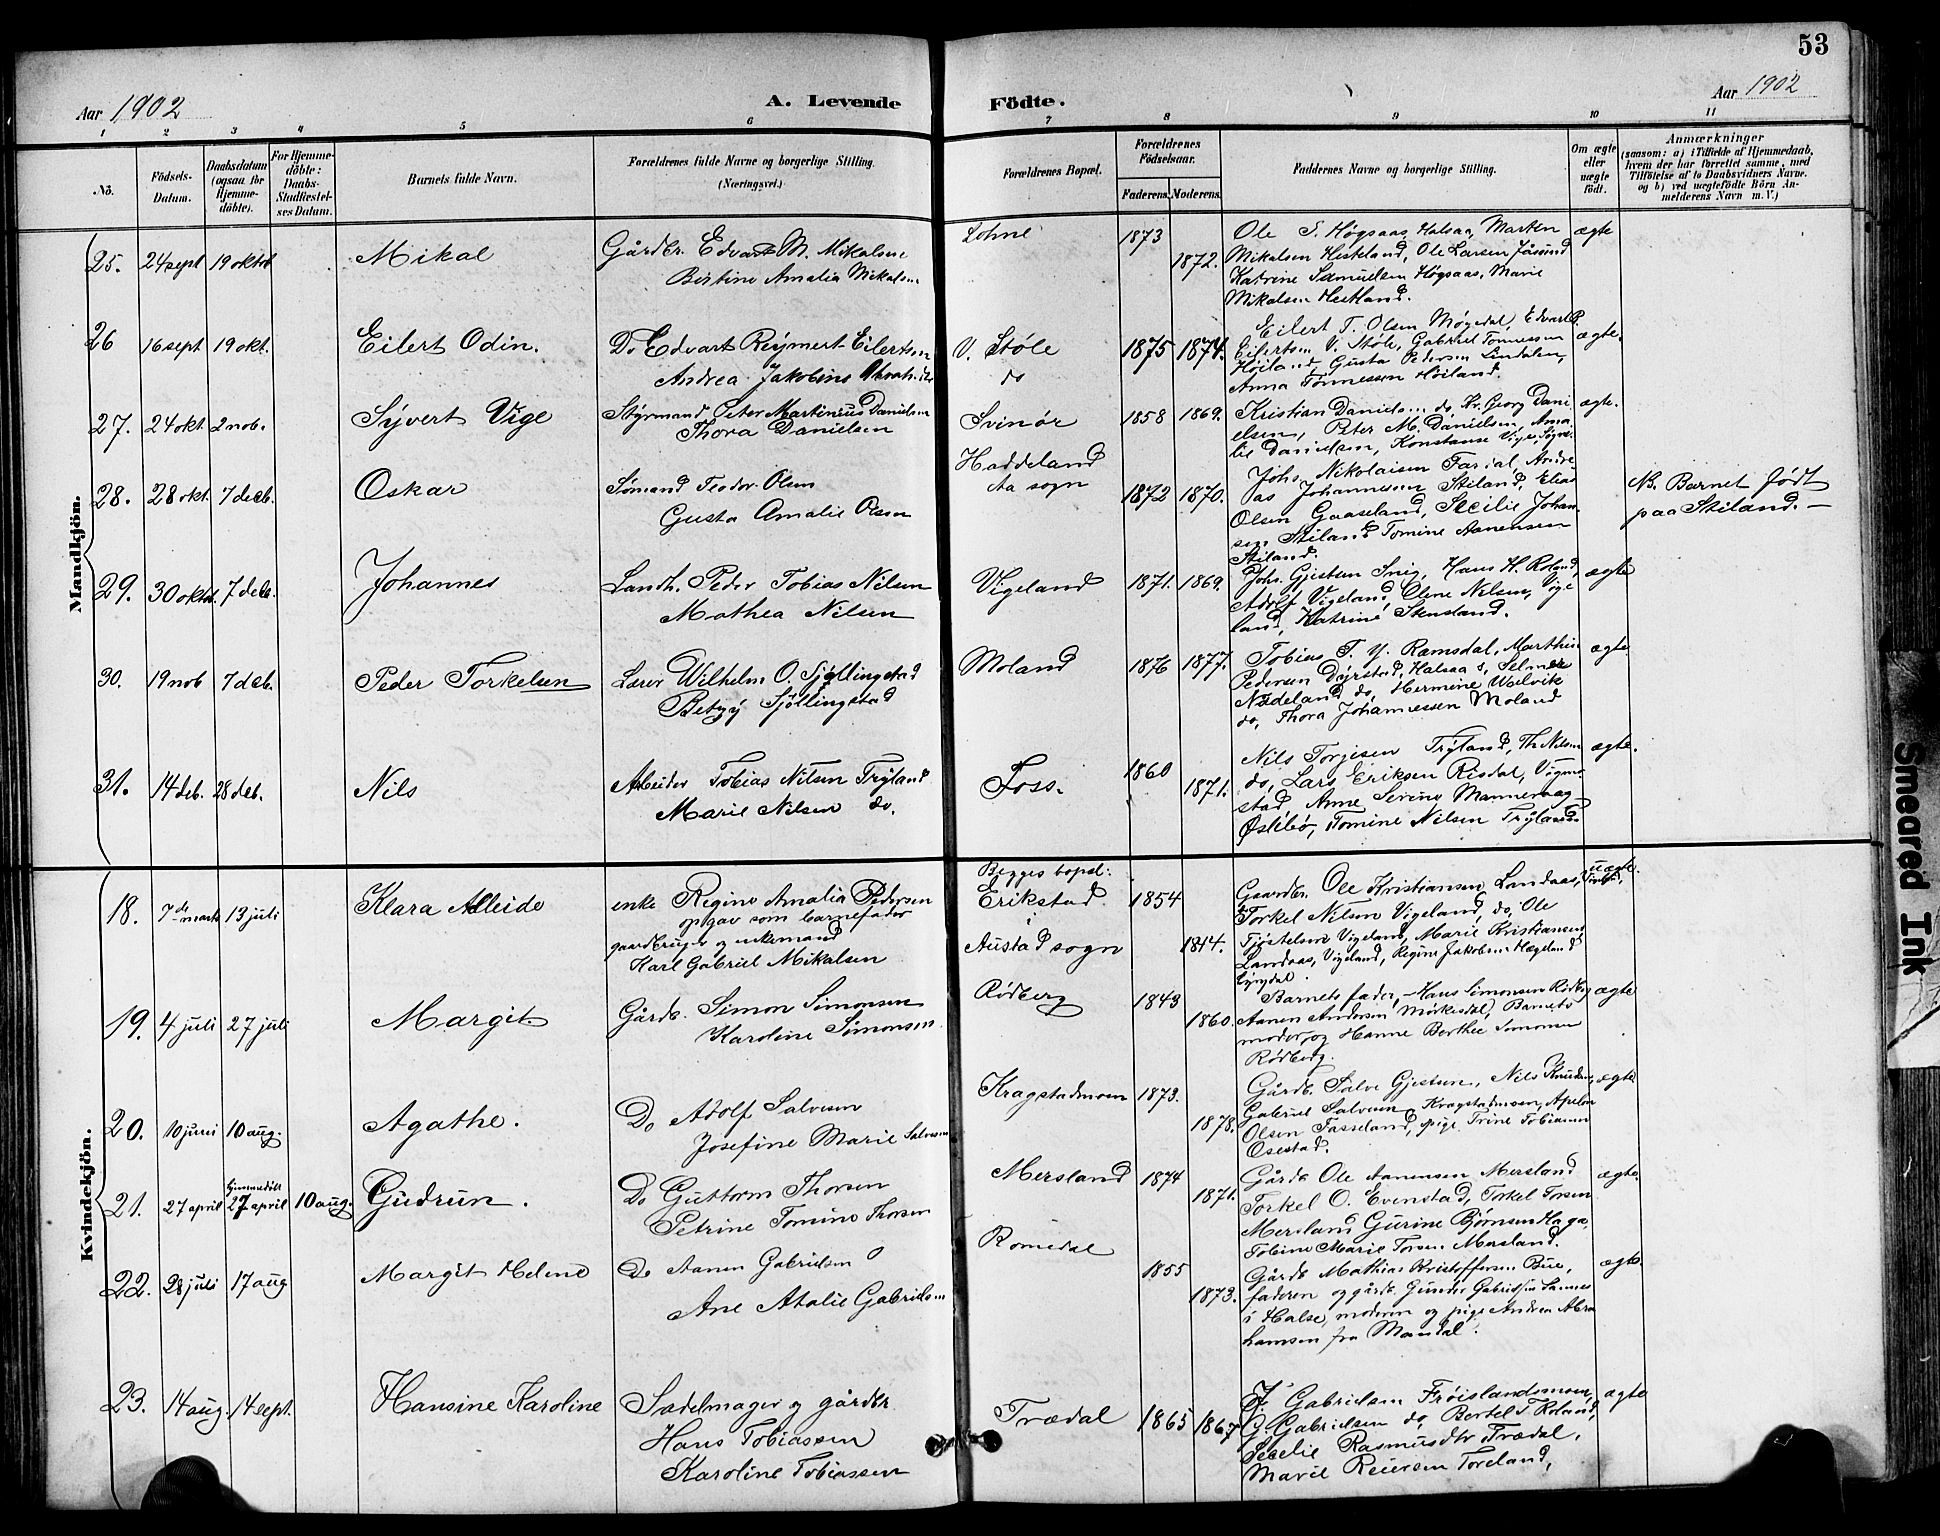 53
Aar 1902
A. Levende
Födte.
Aar 1902
1 2 3 4 5 6 7 8 9 10 11
No.
Födsels-
Datum.
Daabsdatum
(ogsaa for
Hjemme-
döbte).
For Hjemme-
döbte:
Daabs-
Stadfæstel-
ses Datum.
Barnets fulde Navn.
Forældrenes fulde Navne og borgerlige Stilling.
(Næringsvei.)
Forældrenes Bopæl.
Forældrenes
Födselsaar.
Faderens. Moderens.
Faddernes Navne og borgerlige Stilling.
Om ægte
eller
uægte
födt.
Anmærkninger
(saasom: a) i Tilfælde af Hjemmedaab,
hvem der har forrettet samme, med
Tilföielse af to Daabsvidners Navne.
og b) ved uægtefödte Börn An-
melderens Navn m. V.)
Mandkjön.
25. 24 sept 19 oktob Mikal
Gårdbr. Edvart M. Mikalsen
Bertine Amalia Mikals...
Lohne 1873 1872.
Ole S. Høgsaas, Halsaa, Marten
Mikalsen Hesteland, Ole Larsen Jåsund
Katrine Samuelsen Høgsaas, Marie
Mikalsen Hestland.
ægte
26 16 sept 19 okt. Eilert Odin.
Do Edvart Reymert Eilertsen
Andrea Jakobine
V. Støle
do
1875 1874.
Eilert T. Olsen Møgedal, Edvart R.
Eilertsen V. Støle, Gabriel Tønnessen
Høiland, Gusta Pedersen Lindalen,
Anna Tønnessen Høiland.
ægte.
27. 24 okt. 2 nob. Syvert Vige
Styrmand Peter Martinius Danielsen
Thora Danielsen
Svinør 1858 1869.
Kristian Daniels... do, Kr. Georg Dani-
elsen, Peter M. Danielsen, Ama-
lie Danielsen, Konstanse Vige, Søgne.
ægte.
28. 28 okt. 7 deeb. Oskar
Sømand Teodor Olsen
Gusta Amalie Olsen
Haddeland
Aa sogn
1872 1870.
Johs. Nikolaisen Fardal, Andre-
as Johannessen Stiland, Elias
Olsen Gaaseland, Secilie Johan-
sen Stiland Tomine Aanensen
Stiland.
NB. Barnet født
paa Stiland. —
29. 30 oktb. 7 deeb. Johannes
Landh. Peder Tobias Nilsen
Mathea Nilsen
Vigeland 1871. 1869.
Johs. Gjertsen Snig, Hans H. Roland,
Adolf Vigeland, Elene Nilsen, Vige
land, Katrine Stensland.
ægte
30. 19 nob 7 deb. Peder Torkelsen
Lærer Wilhelm O. Sjøllingstad
Betzy Sjøllingstad
Moland 1876 1877.
Tobias T. Y. Ramsdal, Marthin
Pedersen Dyrstad, Halsaa s, Selmer
Nødeland do, Hermine Valvik
do, Thora Johannessen Moland
ægte
31. 14 deb. 28 deb. Nils
Arbeider Tobias Nilsen Tryland
Marie Nilsen do.
Foss. 1860 1871.
Nils Torjesen Tryland, Th. Nilsen
do, Lars Eriksen Risdal, Vigmo-
stad, Anne Serine Mannevaag-
Østebø, Tomine Nilsen Tryland.
ægte.
Kvindekjön.
18. 7de marts 13 juli Klara Alleide
enke Regine Amalia Pedersen
opgav som barnefader
gaardbruger og enkemand
Karl Gabriel Mikalsen
Begges bopæl:
Erikstad
i
Austad sogn
1854 1814.
Gaardbr. Ole Kristiansen Landaas,
Torkel Nilsen Vigeland, do, Ole
Tjøstelsen Vigeland, Marie Kristiansen
Landaas, Vigeland, Regine Jakobsen Hægeland
Lyngdal.
uægte.
19. 4 juli 27 juli Margit
Gårdb. Simon Simonsen
Karoline Simonsen.
Rødberg 1843 1860.
Barnets fader, Hans Simonsen Rødberg
Aanen Andersen Mørkesdal, Barnets
moder, og Hanne Berthee Simonsen
Rødberg.
ægte
20. 10 juni 10 aug. Agathe.
Do Adolf Salvesen
Josefine Marie Salvesen
Kragstadmoen 1873. 1878.
Gårdb. Salve Gjertsen, Nils Knudsen,
Gabriel Salvesen Kragstadmoen, Apelon
Olsen Fasseland, pige Trine Tobiasen
Osestad.
ægte
21. 27 april Hjemmedöbt 27 april 10 aug. Gudrun.
Do Guttorm Thorsen
Petrine Tomine Thorsen
Mersland 1874 1871.
Gårdb Ole Aanensen Mersland
Torkel O. Evenstad, Torkel Torsen
Mersland Gurine Bjørnsen Haga,
Tobine Marie Torsen Mersland.
ægte.
22. 28 juli 17 aug Margit Helene
Do Aanen Gabrielsen
Ane Atalie Gabriels...
Romedal 1855 1873.
Gårdb Mathias Kristoffersen Bue,
faderen og gårdb. Gunder Gabrielsen Sannes
i Halse, moderen og pige Andrea Abra
hamsen fra Mandal.
ægte.
23. 14 aug. 14 sept. Hansine Karoline
Sadelmager og gårdbr.
Hans Tobiassen
Karoline Tobiassen
Trædal 1865 1867
J. Gabrielsen Frøislandsmoen,
G. Gabrielsen do, Bertel T Roland,
Secelie Rasmusdtr Trædal,
Marie Reiersen Foreland,
ægte
Smeared Ink